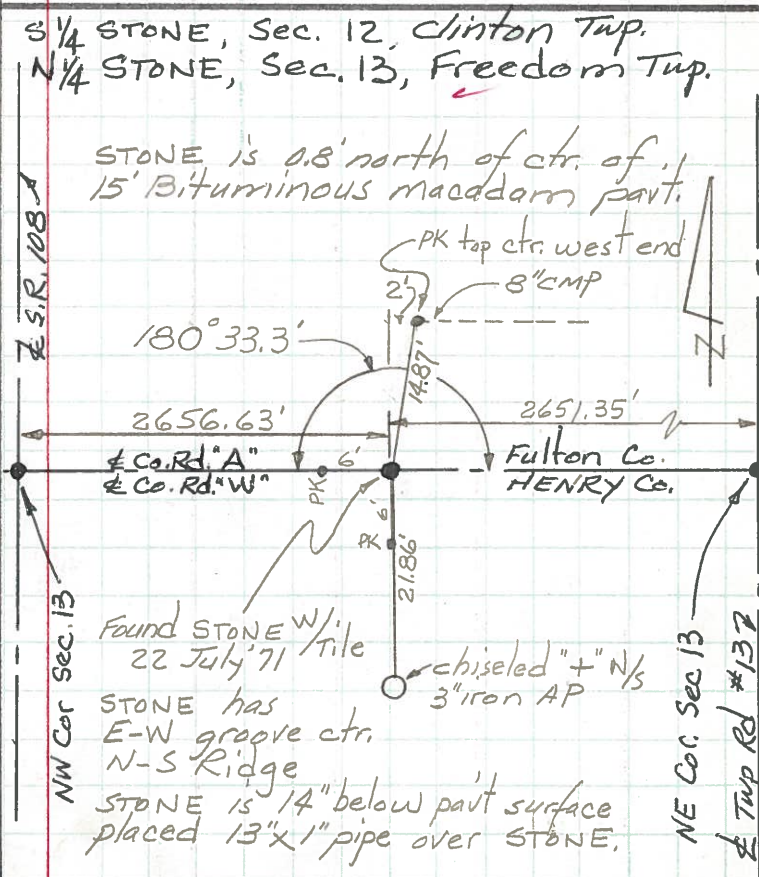 S 1/4 STONE, Sec. 12, Clinton Twp.
N 1/4 STONE, Sec. 13, Freedom Twp.
STONE is 0.8' north of ctr. of
15' Bituminous macadam pav't.
PK top ctr. west end
8" CMP
2'
℄ S.R. 108
180° 33.3'
14.87'
N
2656.63'
2651.35'
℄ Co. Rd. "A"
℄ Co. Rd. "W"
6'
PK
Fulton Co.
HENRY Co.
6'
PK
21.86'
NW Cor Sec. 13
Found STONE W/Tile
22 July '71
chiseled "+" N/s
3" iron AP
STONE has
E-W groove ctr.
N-S Ridge
STONE is 14" below pav't surface
placed 13" x 1" pipe over STONE.
NE Cor. Sec 13
℄ Twp Rd #137